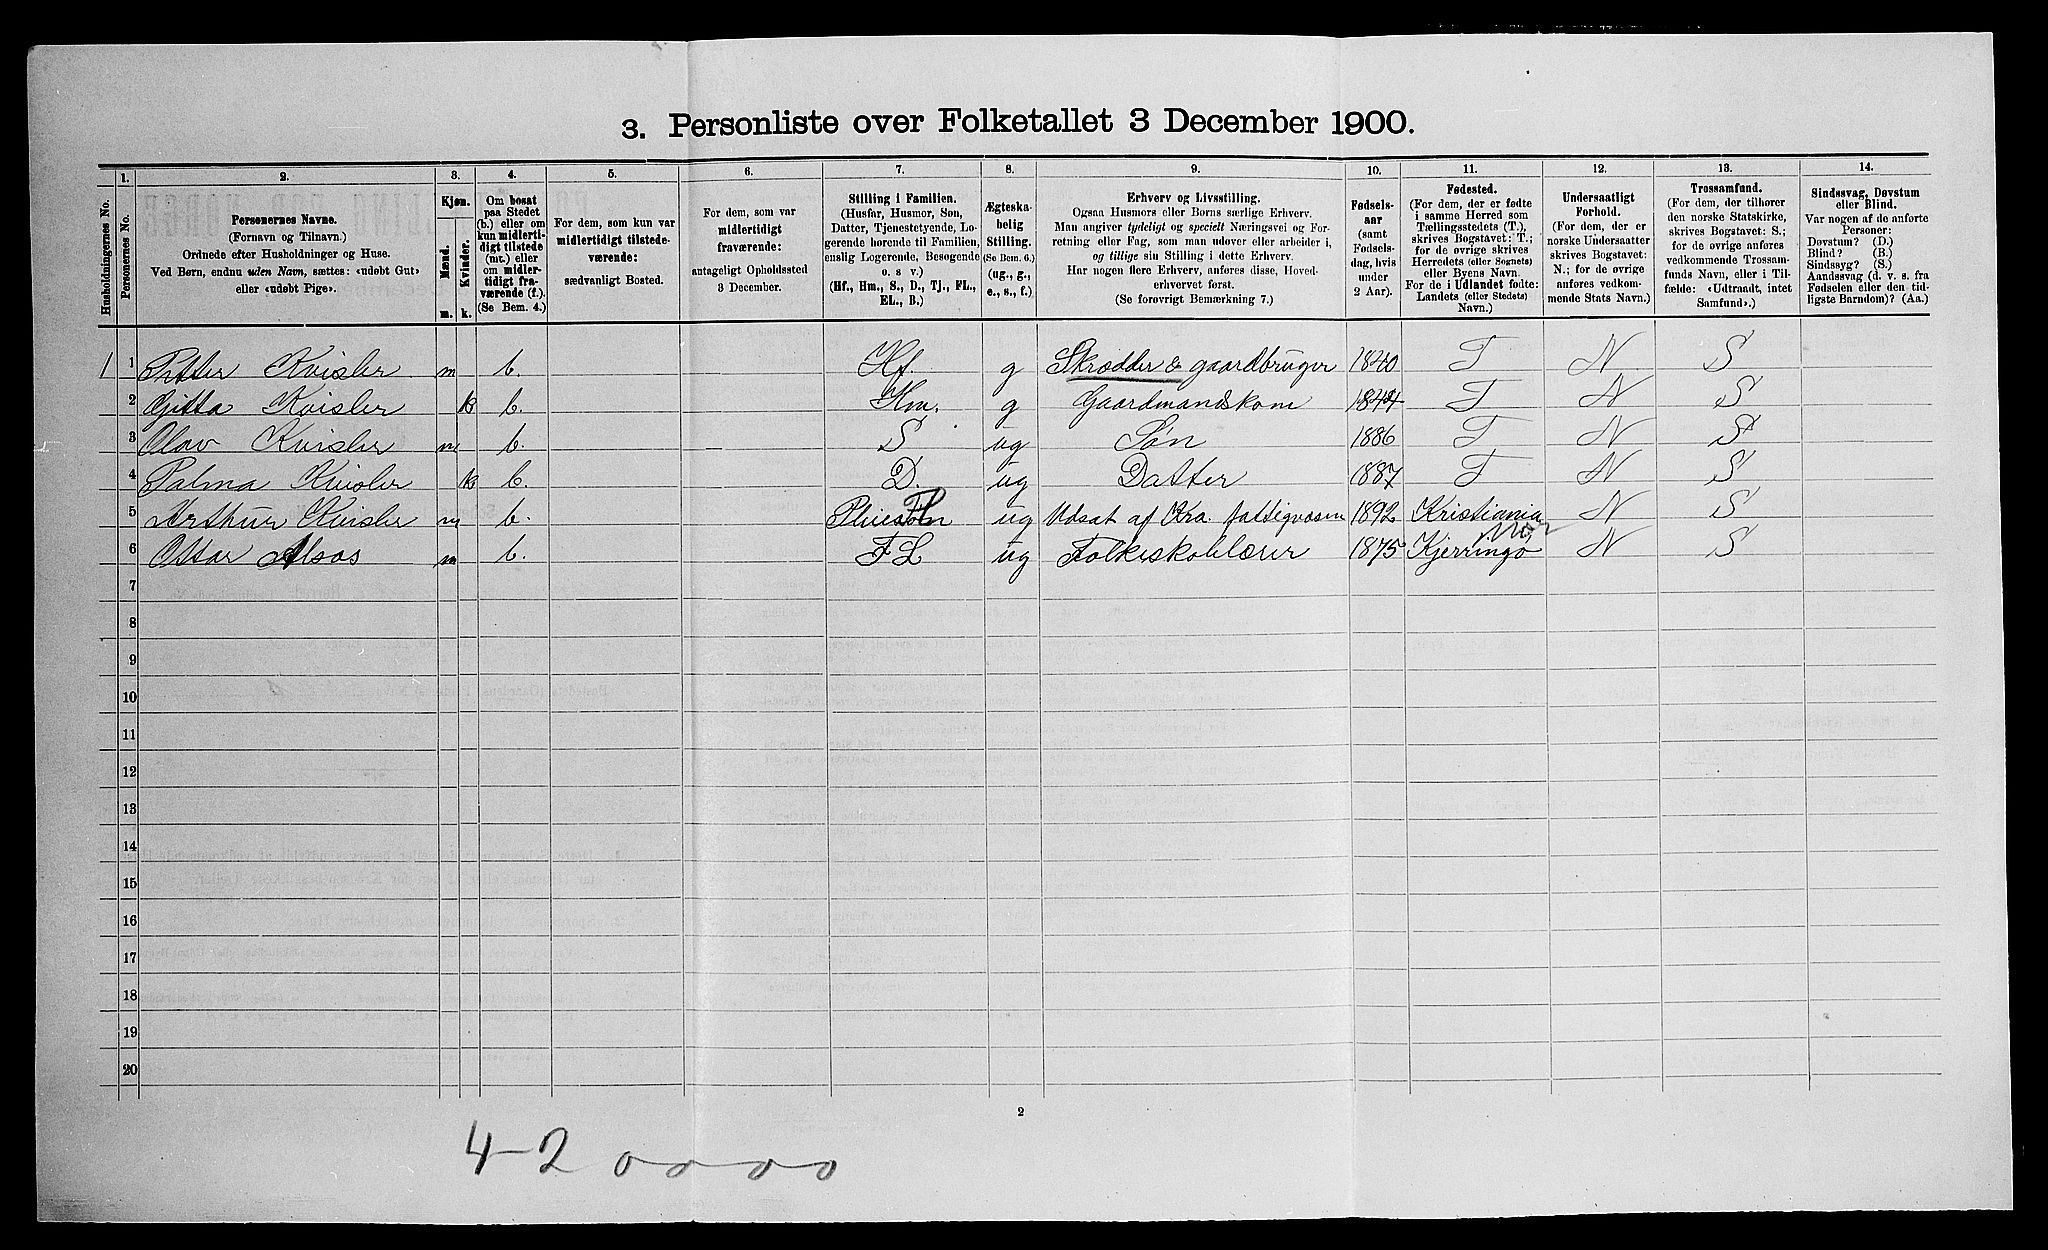 3. Personliste over Folketallet 3 December 1900.
1. 2. 3. 4. 5. 6. 7. 8. 9. 10. 11. 12. 13. 14.
Husholdningernes No.
Personernes No.
Personernes Navne.
(Fornavn og Tilnavn.)
Ordnede efter Husholdninger og Huse.
Ved Børn, endnu uden Navn, sættes: «udøbt Gut»
eller «udøbt Pige».
Kjøn.
Mænd.
Kvinder.
m. k.
Om bosat
paa Stedet
(b.) eller om
kun midler-
tidigt tilstede
(mt.) eller
om midler-
tidigt fra-
værende (f.).
(Se Bem. 4.)
For dem, som kun var
midlertidigt tilstede-
værende:
sædvanligt Bosted.
For dem, som var
midlertidigt
fraværende:
antageligt Opholdssted
3 December.
Stilling i Familien.
(Husfar, Husmor, Søn,
Datter, Tjenestetyende, Lo-
gerende hørende til Familien,
enslig Logerende, Besøgende
o. s v.)
(Hf., Hm., S., D., Tj., FL.,
EL., B.)
Ægteska-
belig
Stilling.
(Se Bem. 6.)
(ug., g.,
e., s., f.)
Erhverv og Livsstilling.
Ogsaa Husmors eller Børns særlige Erhverv.
Man angiver tydeligt og specielt Næringsvei og For-
retning eller Fag, som man udøver eller arbeider i,
og tillige sin Stilling i dette Erhverv.
Har nogen flere Erhverv, anføres disse, Hoved-
erhvervet først.
(Se forøvrigt Bemærkning 7.)
Fødsels-
aar
(samt
Fødsels-
dag, hvis
under
2 Aar).
Fødested.
(For dem, der er fødte
i samme Herred som
Tællingsstedets (T.),
skrives Bogstavet: T.;
for de øvrige skrives
Herredets (eller Sognets)
eller Byens Navn.
For de i Udlandet fødte:
Landets (eller Stedets)
Navn.)
Undersaatligt
Forhold.
(For dem, der er
norske Undersaatter
skrives Bogstavet:
N.; for de øvrige
anføres vedkom-
mende Stats Navn.)
Trossamfund.
(For dem, der tilhører
den norske Statskirke,
skrives Bogstavet: S.;
for de øvrige anføres
vedkommende Trossam-
funds Navn, eller i Til-
fælde: «Udtraadt, intet
Samfund».)
Sindssvag, Døvstum
eller Blind.
Var nogen af de anførte
Personer:
Døvstum? (D.)
Blind? (B.)
Sindssyg? (S.)
Aandssvag (d. v. s. fra
Fødselen eller den tid-
ligste Barndom)? (Aa.)
1 1 Petter Kvisler m b. Hf. g Skrædder & gaardbruger 1840 T N S
2 Gitta Kvisler k b. Hm. g Gaardmandskone 1844 T N S
3 Olav Kvisler m b. S ug Søn 1886 T N S
4 Palma Kvisler k b. D. ug Datter 1887 T N S
5 Arthur Kvisler m b. Pleiesøn ug Udsat af Kra. fattigvæsen 1892 Kristiania N S
6 Ottar Alsos m b. FL ug Folkeskolelærer 1875 Kjerringø N S
7
8
9
10
11
12
13
14
15
16
17
18
19
20
2
4-2 0 0 0 0